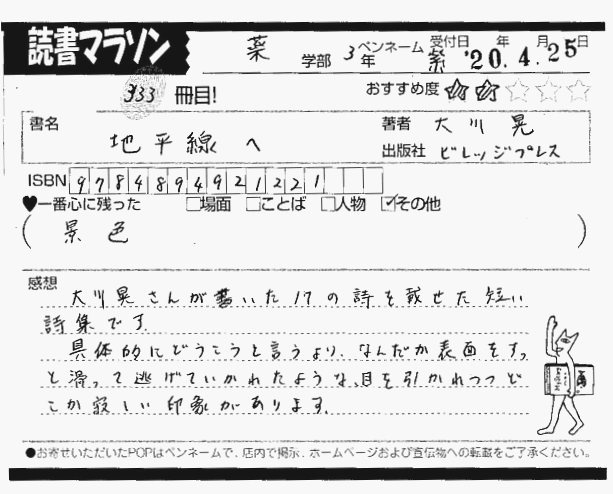 読書マラソン
薬 学部 3年 ペンネーム 紫 受付日 '20.年4.月25日
333 冊目! おすすめ度 ★★☆☆☆
書名 地平線へ 著者 大川晃
出版社 ビレッジプレス
ISBN 9784894921221
♥一番心に残った □場面 □ことば □人物 ☑その他
( 景色 )
感想
大川晃さんが書いた17の詩を載せた短い
詩集です.
具体的にどうこうと言うより、なんだか表面をすっ
と滑って逃げていかれたような、目を引かれつつど
こか寂しい印象があります.
●お寄せいただいたPOPはペンネームで、店内で掲示、ホームページおよび宣伝物への転載をご了承ください。